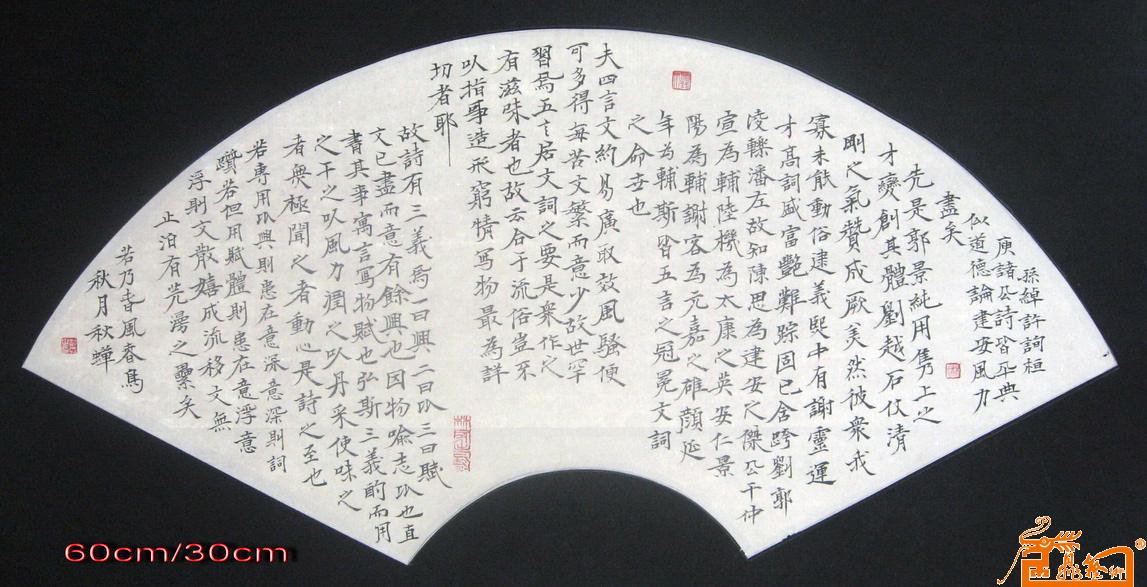 孫綽許詢桓
庾諸公詩皆平典
似道德論建安風力
盡矣
先是郭景純用雋上之
才變創其體劉越石仗清
剛之氣贊成厥美然彼衆我
寡未能動俗逮義熙中有謝靈運
才高詞盛富艷難踪固已含跨劉郭
淩轢潘左故知陳思為建安之傑公干仲
宣為輔陸機為太康之英安仁景
陽為輔謝客為元嘉之雄顏延
年為輔斯皆五言之冠冕文詞
之命世也
夫四言文約易廣取效風騷便
可多得每苦文繁而意少故世罕
習焉五言居文詞之要是衆作之
有滋味者也故云合于流俗豈不
以指事造形窮情寫物最為詳
切者耶
故詩有三義焉一曰興二曰以三曰賦
文已盡而意有餘興也因物喻志以也直
書其事寓言寫物賦也弘斯三義酌而用
之干之以風力潤之以丹采使味之
者無極聞之者動心是詩之至也
若專用以興則患在意深意深則詞
躓若但用賦體則患在意浮意
浮則文散嬉成流移文無
止泊有芜漫之累矣
若乃春風春鳥
秋月秋蟬
60cm/30cm